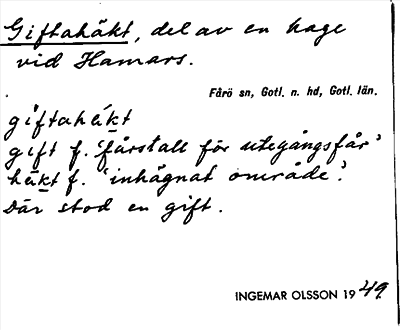 Giftahäkt, del av en hage
vid Hamars.
Fårö sn, Gotl. n. hd, Gotl. län.
giftahäkt
gift f. 'fårstall för utegångsfår'
häkt f. 'inhägnat område'.
Där stod en gift.
INGEMAR OLSSON 1949